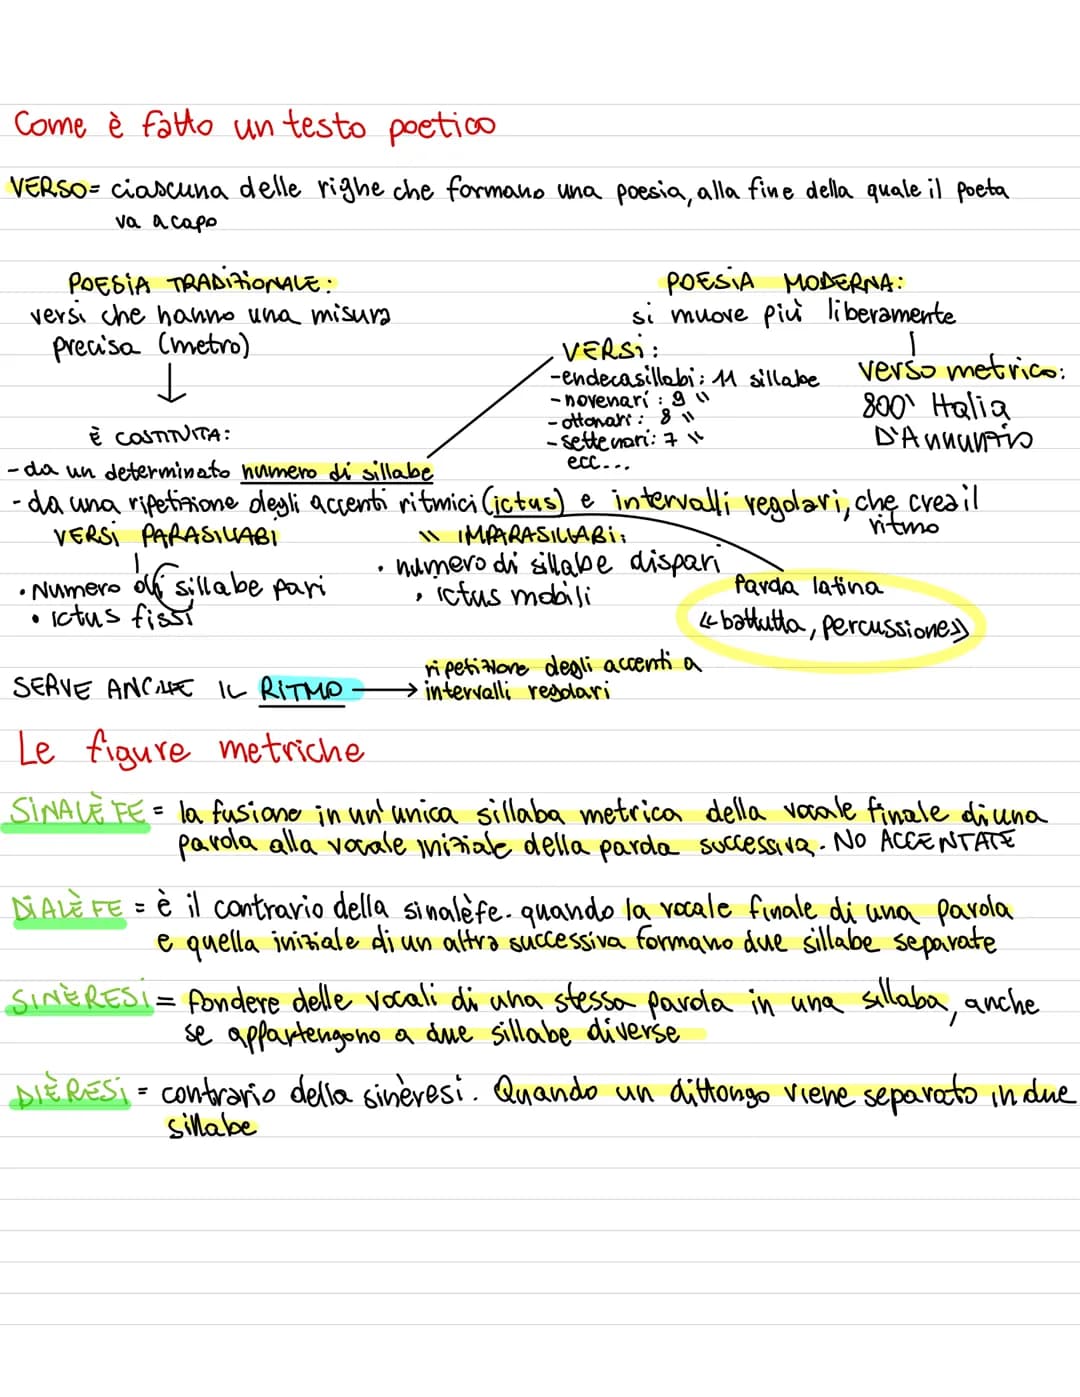 Come è fatto un testo poetico
VERSO= ciascuna delle righe che formano una poesia, alla fine della quale il poeta
va a capo
POESIA TRADIZIONALE:
versi che hanno una misura
precisa (metro)
È COSTITUITA:
POESIA MODERNA:
si muove più liberamente
VERSI:
-endecasillabi: 11 sillabe
-novenari: 9 "
-ottonari: 8 "
-settenari: 7 "
ecc...
verso metrico:
800' Italia
D'Annunzio
-da un determinato numero di sillabe
-da una ripetizione degli accenti ritmici (ictus) e intervalli regolari, che crea il
ritmo
VERSI PARASILLABI
• Numero di sillabe pari
• ictus fissi
" IMPARASILLABI:
• numero di sillabe dispari
• ictus mobili
Parola latina
«battutta, percussione»
SERVE ANCHE IL RITMO → ripetizione degli accenti a
intervalli regolari
Le figure metriche
SINALÈFE = la fusione in un'unica sillaba metrica della vocale finale di una
parola alla vocale iniziale della parola successiva. NO ACCENTATE
DIALÈFE = è il contrario della sinalèfe. quando la vocale finale di una parola
e quella iniziale di un altra successiva formano due sillabe separate
SINÈRESI = fondere delle vocali di una stessa parola in una sillaba, anche
se appartengono a due sillabe diverse
DIÈRESI = contrario della sinèresi. Quando un dittongo viene separato in due
sillabe